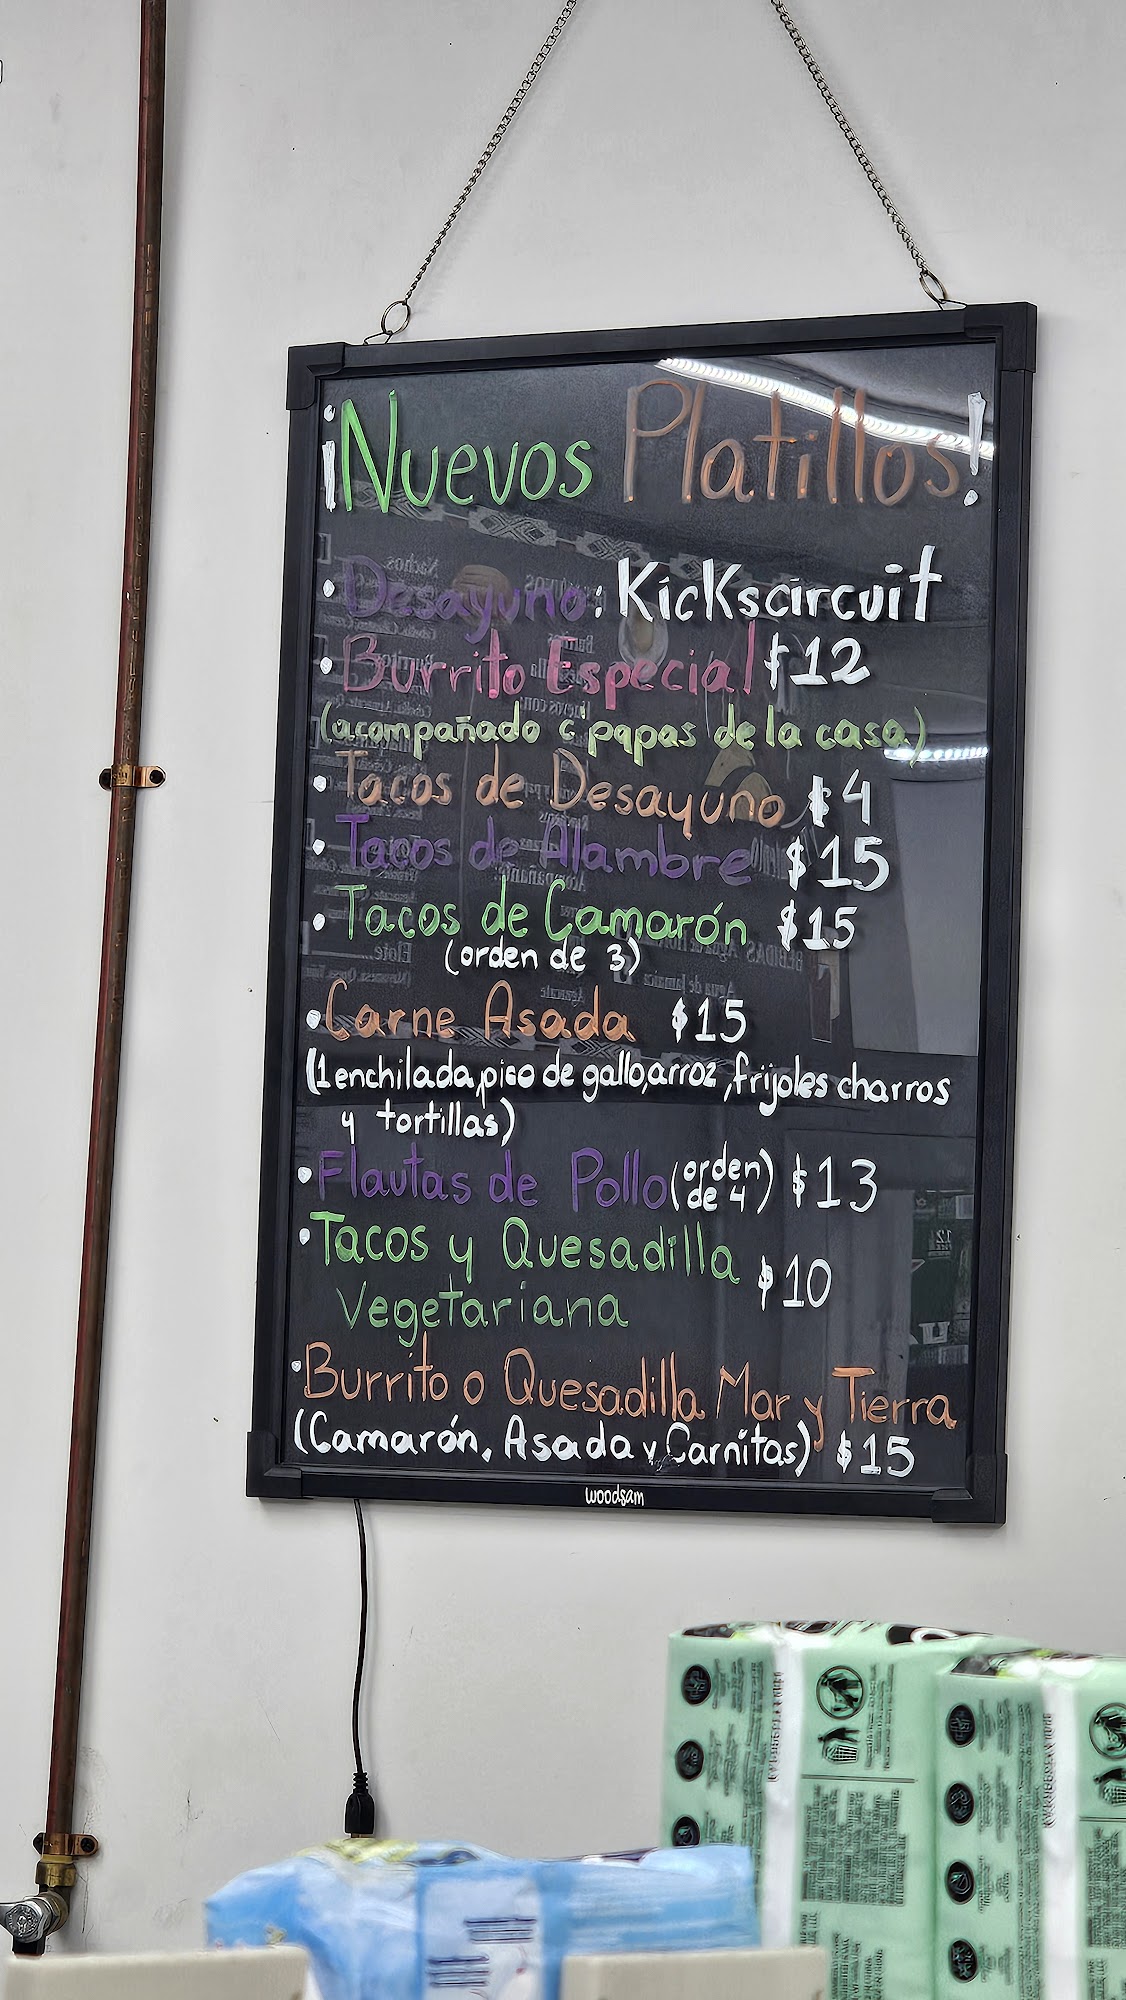 ¡Nuevos Platillos!
• Desayuno: Kickscircuit
• Burrito Especial $12
(acompañado c' papas de la casa)
• Tacos de Desayuno $4
• Tacos de Alambre $15
• Tacos de Camarón $15
(orden de 3)
• Carne Asada $15
(1 enchilada, pico de gallo, arroz, frijoles charros
y tortillas)
• Flautas de Pollo (orden de 4) $13
• Tacos y Quesadilla
Vegetariana $10
• Burrito o Quesadilla Mar y Tierra
(Camarón, Asada y Carnitas) $15
woodsam